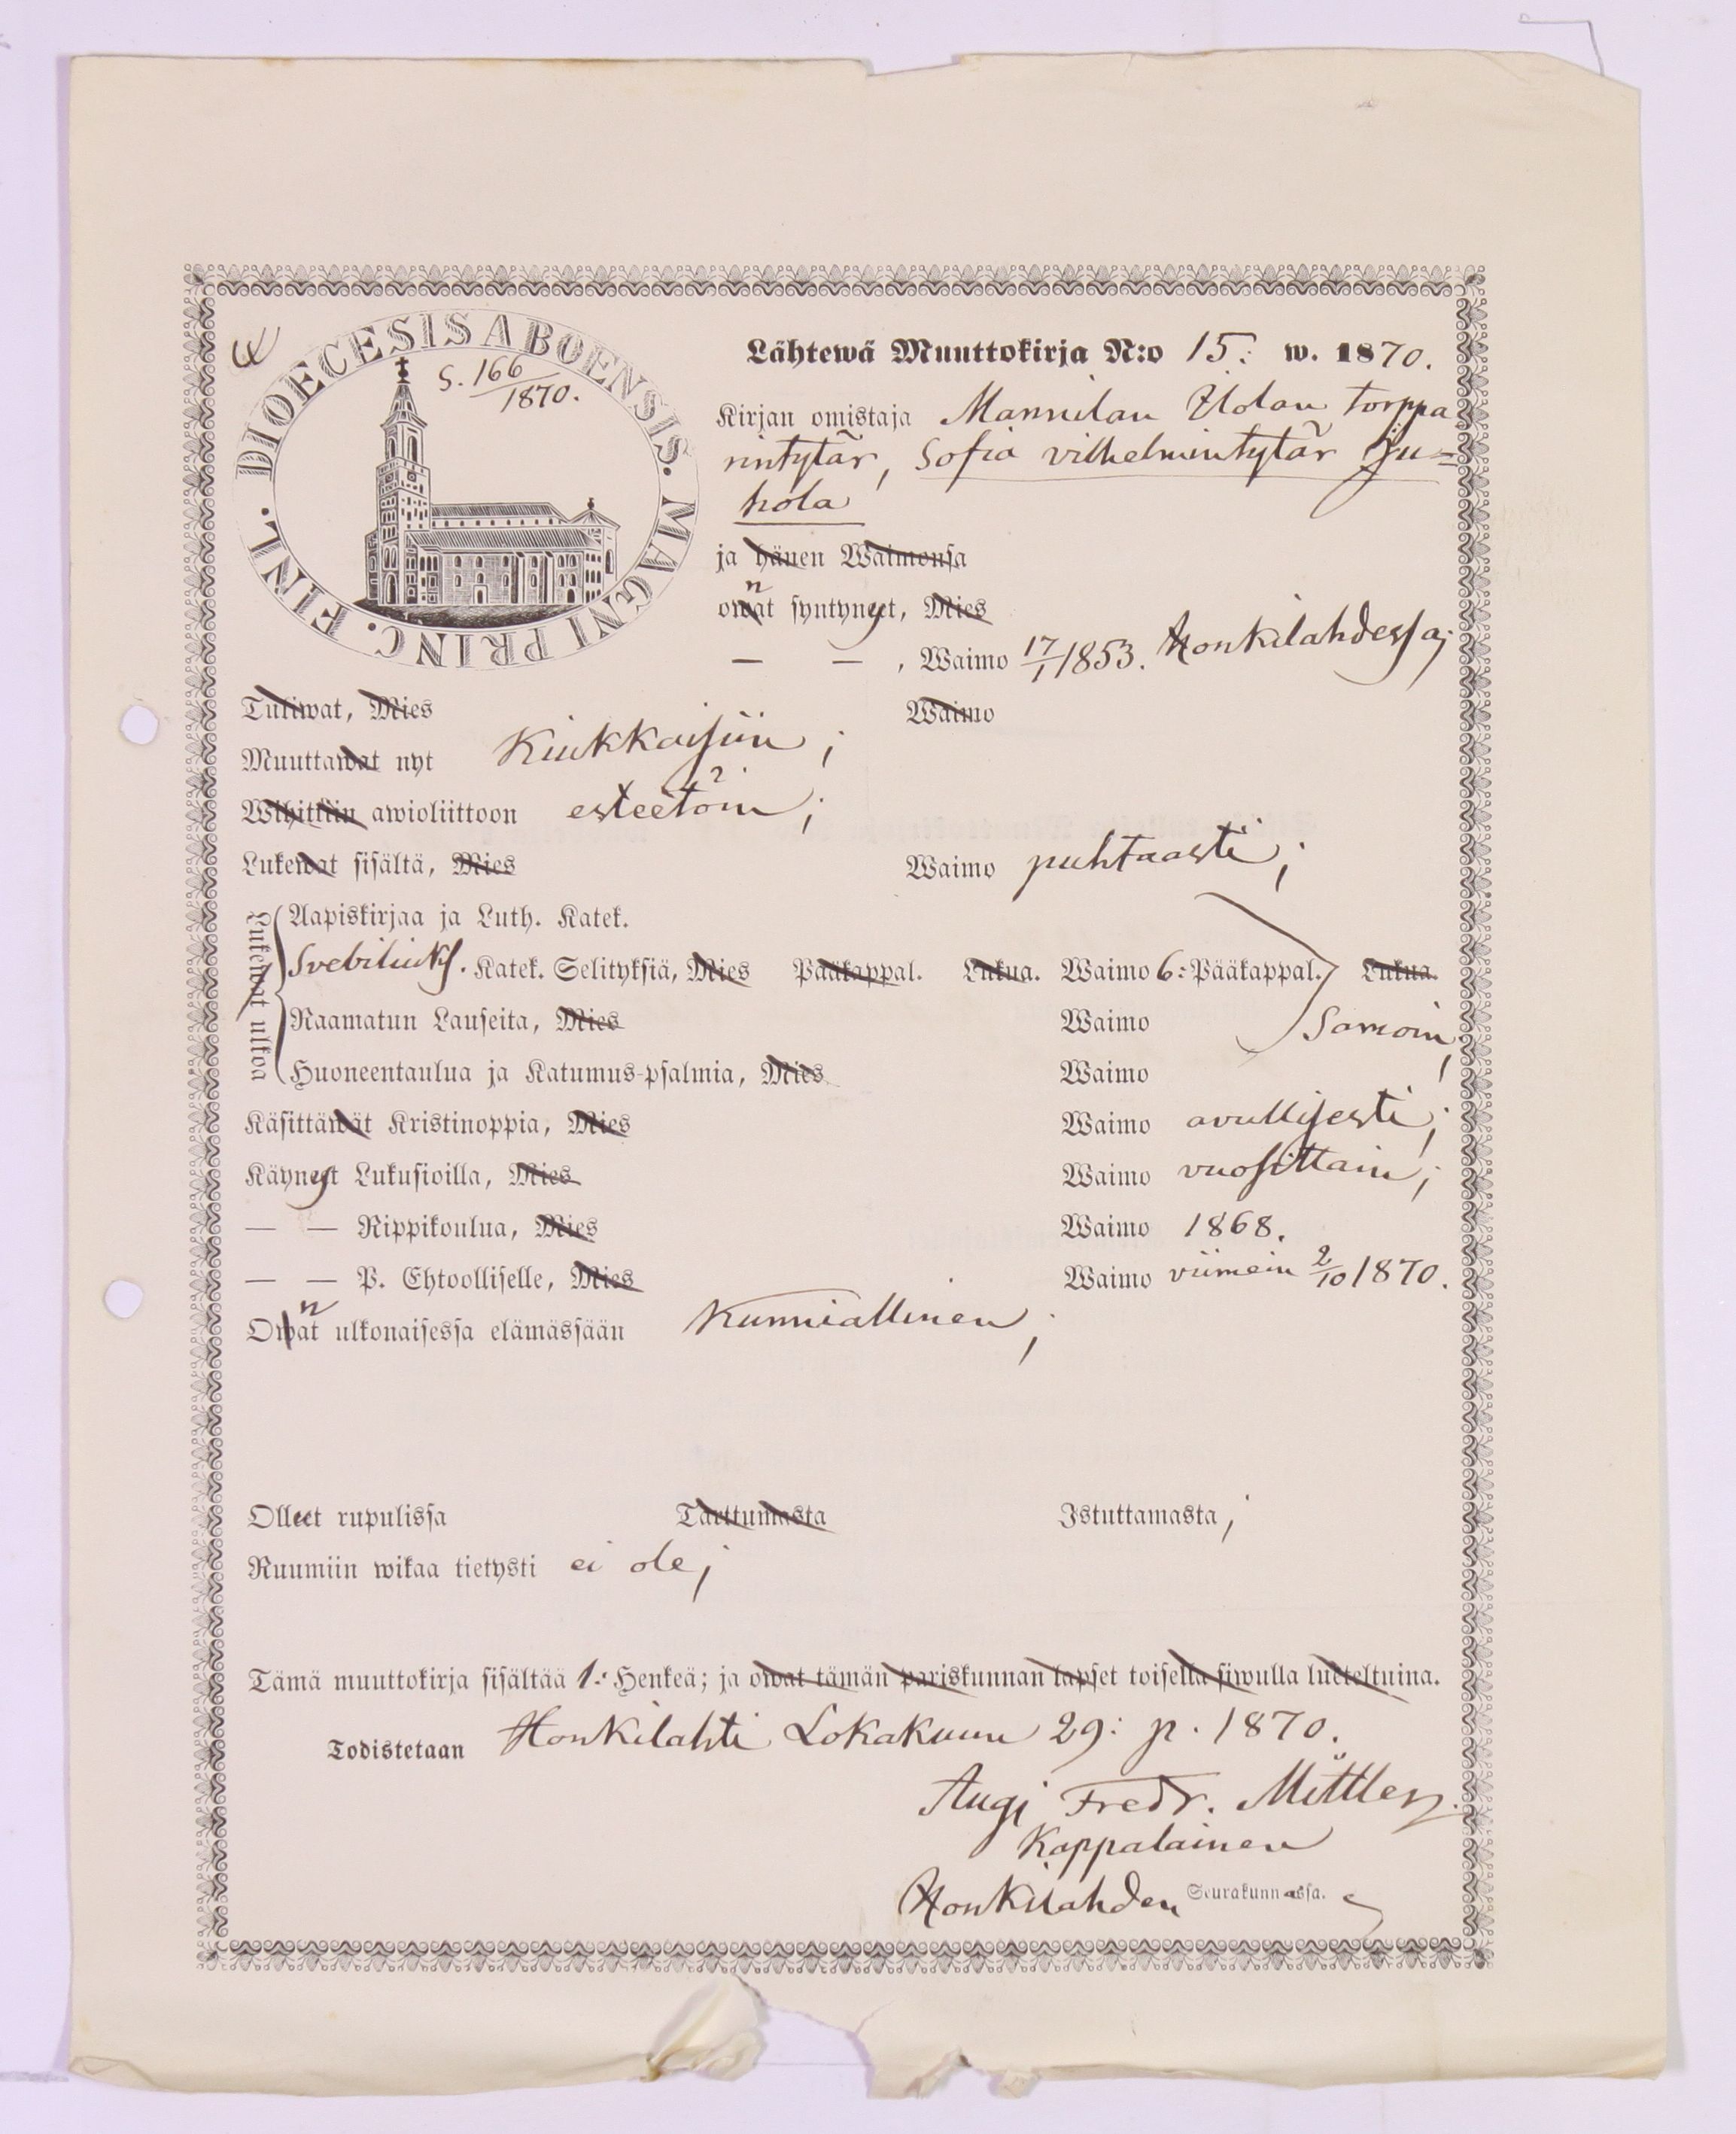 DIOECESIS ABOENSIS. MAGNI PRINC. FINL.
S. 166/1870.
Lähtewä Muuttokirja N:o 15: w. 1870.
Kirjan omistaja Mannilan Ylolan torppa
rintytär, Sofia vilhelmintytär Ju=
hola
ja hänen Waimonsa
owat n syntynyt, Mies
— — , Waimo 17/1 1853. Honkilahdessa;
Tuliwat, Mies Waimo
Muuttawat nyt Kiukkaisiin;
Wihittiin awioliittoon esteetöin;
Lukewat sisältä, Mies Waimo puhtaasti;
Lukewat ulkoa
Aapiskirjaa ja Luth. Katek.
Svebiliuks. Katek. Selityksiä, Mies Pääkappal. Lukua. Waimo 6: Pääkappal. Lukua.
Raamatun Lauseita, Mies Waimo Samoin;
Huoneentaulua ja Katumus-psalmia, Mies Waimo
Käsittäwät Kristinoppia, Mies Waimo avullisesti;
Käynyt Lukusioilla, Mies Waimo vuosittain;
— — Rippikoulua, Mies Waimo 1868.
— — P. Ehtoolliselle, Mies Waimo viimein 2/10 1870.
Owat n ulkonaisessa elämässään Kunniallinen;
Ollut rupulissa Tarttumasta Istuttamasta;
Ruumiin wikaa tietysti ei ole;
Tämä muuttokirja sisältää 1: Henkeä; ja owat tämän pariskunnan lapset toisella siwulla lueteltuina.
Todistetaan Honkilahti Lokakuun 29: p. 1870.
Fredr.
Kappalainen
Honkilahden Seurakunnassa.